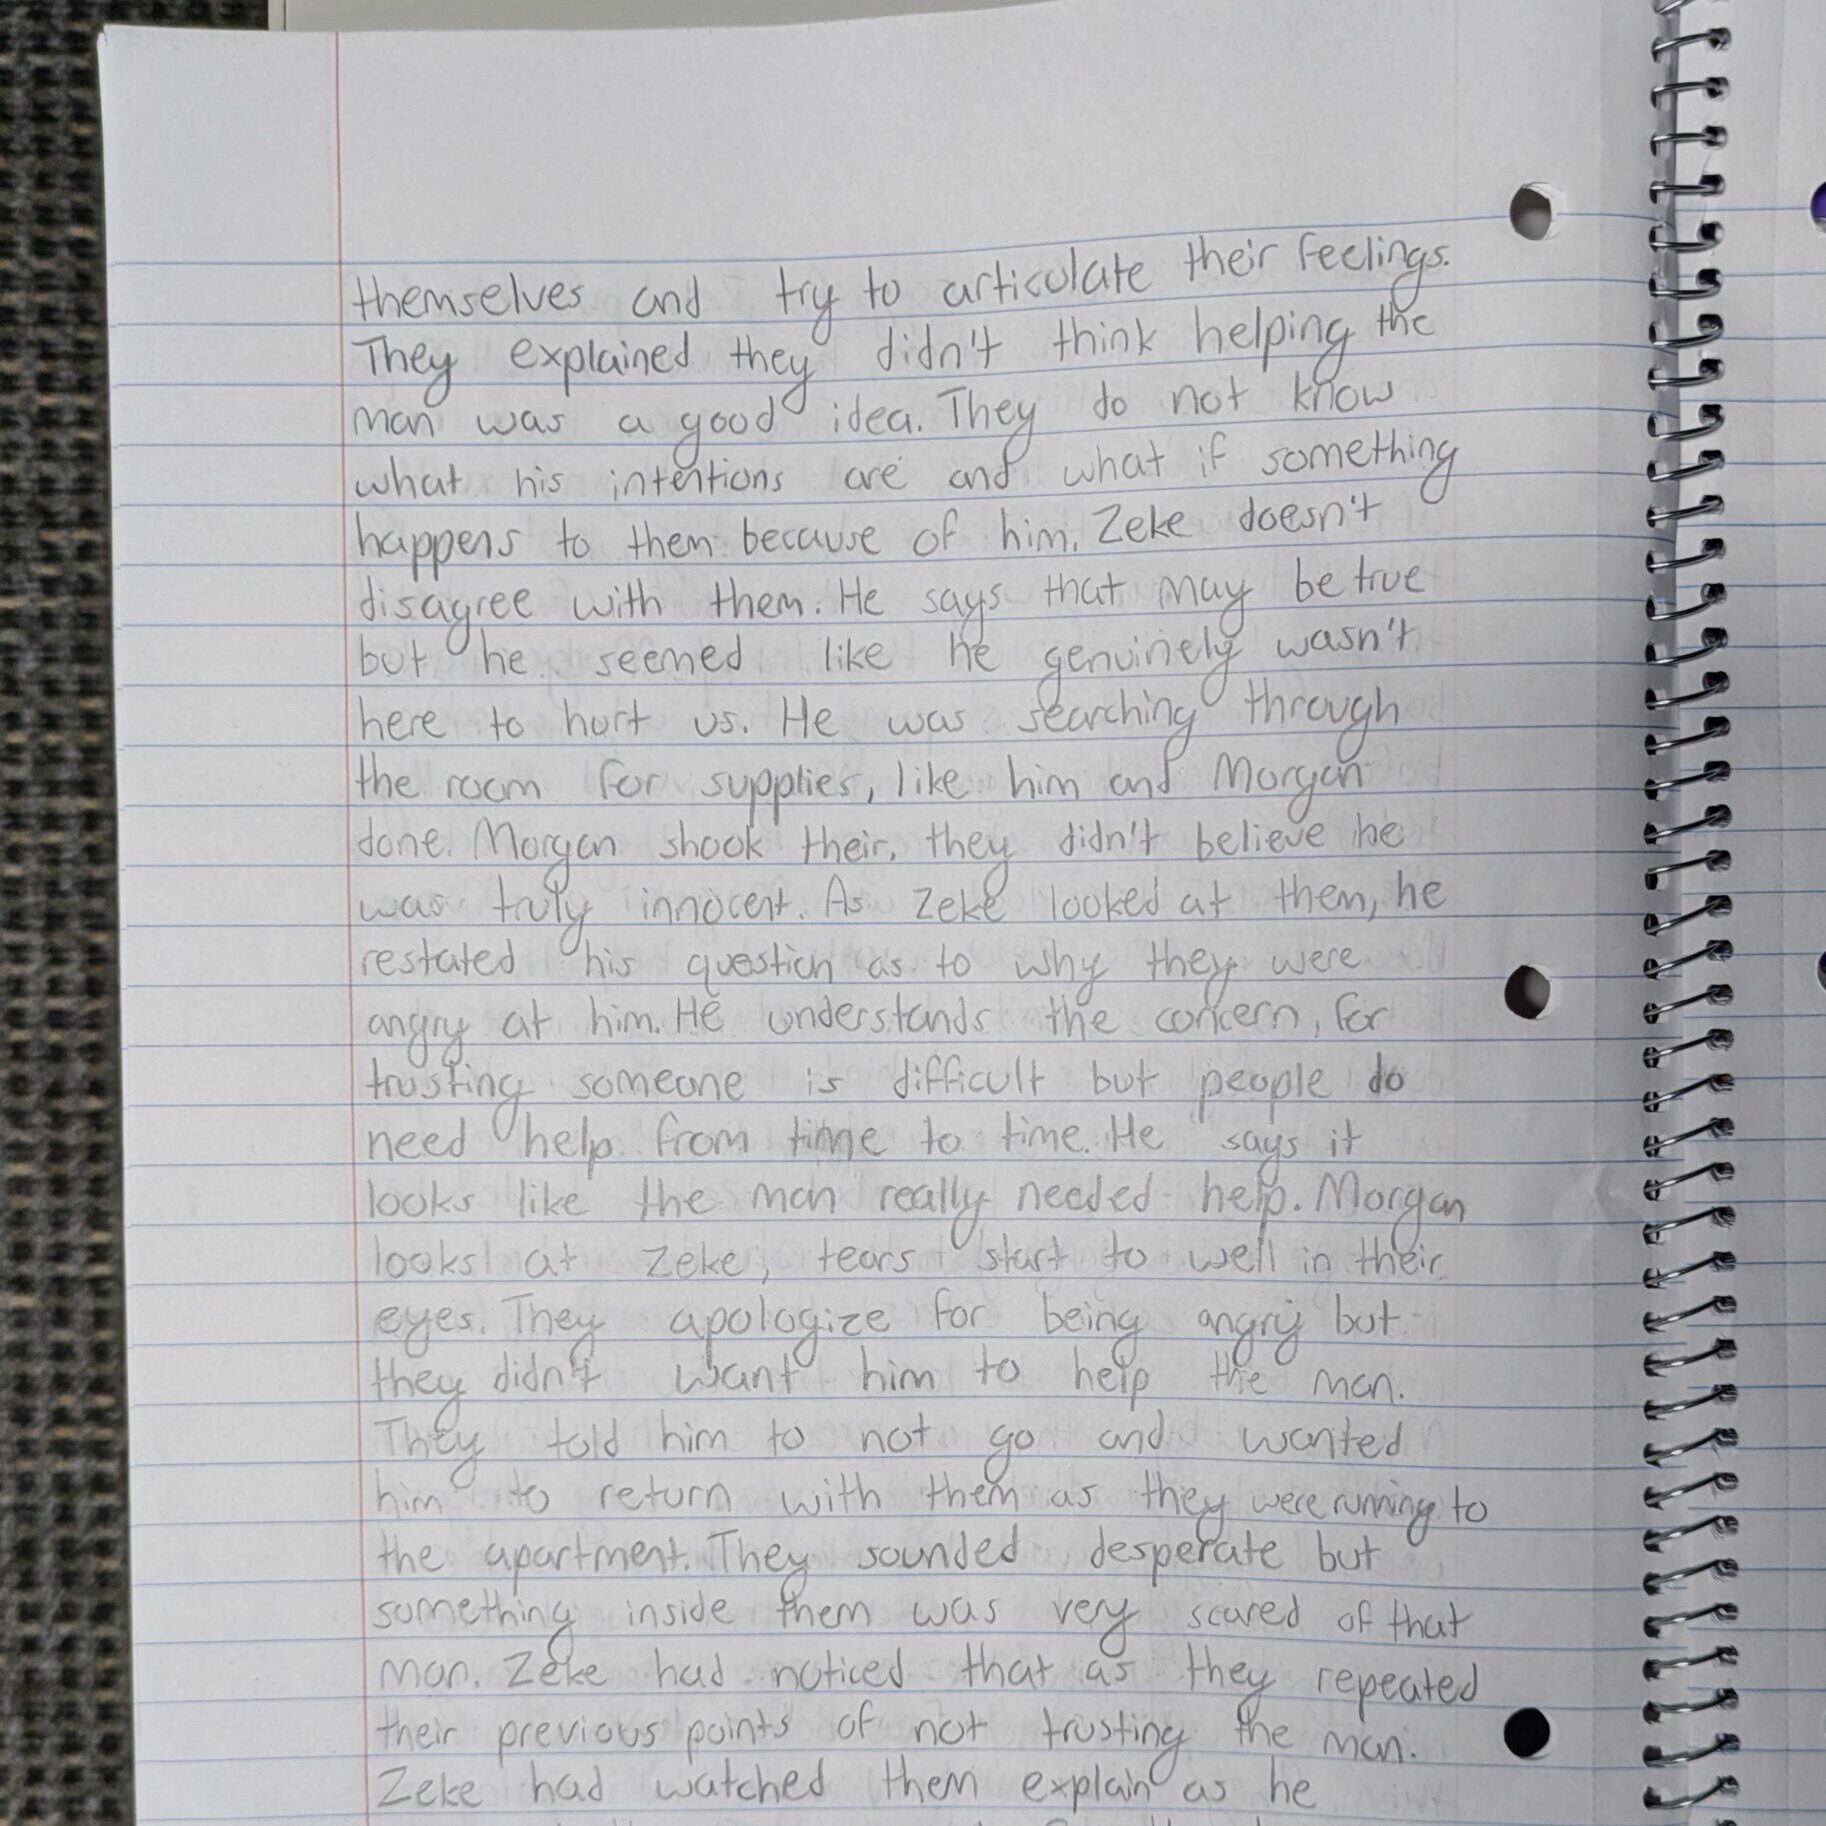 themselves and try to articulate their feelings.
They explained they didn't think helping the
man was a good idea. They do not know
what his intentions are and what if something
happens to them because of him. Zeke doesn't
disagree with them. He says that may be true
but he seemed like he genuinely wasn't
here to hurt us. He was searching through
the room for supplies, like him and Morgan
done. Morgan shook their, they didn't believe he
was truly innocent. As Zeke looked at them, he
restated his question as to why they were
angry at him. He understands the concern, for
trusting someone is difficult but people do
need help from time to time. He says it
looks like the man really needed help. Morgan
looks at Zeke, tears start to well in their
eyes. They apologize for being angry but
they didn't want him to help the man.
They told him to not go and wanted
him to return with them as they were running to
the apartment. They sounded desperate but
something inside them was very scared of that
man. Zeke had noticed that as they repeated
their previous points of not trusting the man.
Zeke had watched them explain as he